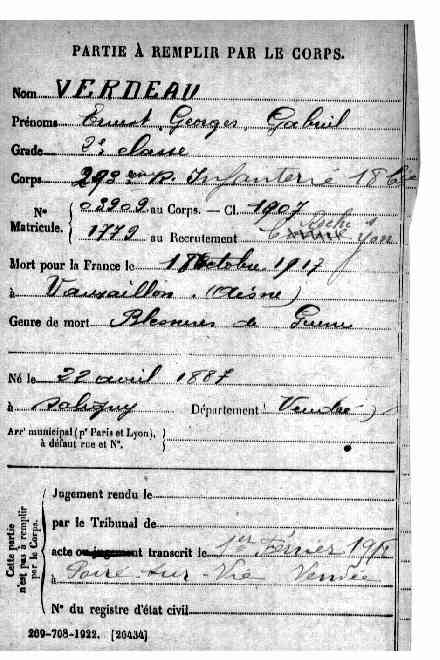 PARTIE À REMPLIR PAR LE CORPS.
Nom VERDEAU
Prénoms Ernest Georges Gabriel
Grade 2e classe
Corps 293 eme R. Infanterie 18 Cie
Nº 03909 au Corps. — Cl. 1907
Matricule. 1779 au Recrutement Roche s Yon
Mort pour la France le 18 Octobre 1917
à Vauxaillon (Aisne)
Genre de mort Blessures de Guerre
Né le 22 avril 1887
à Saligny Département Vendée
Arrt municipal (pr Paris et Lyon),
à défaut rue et Nº.
Cette partie
n'est pas à remplir
par le Corps.
Jugement rendu le
par le Tribunal de
acte ou jugement transcrit le 1er Février 1918
à Poiré-sur-Vie Vendée
Nº du registre d'état civil
209-708-1922. [26434]